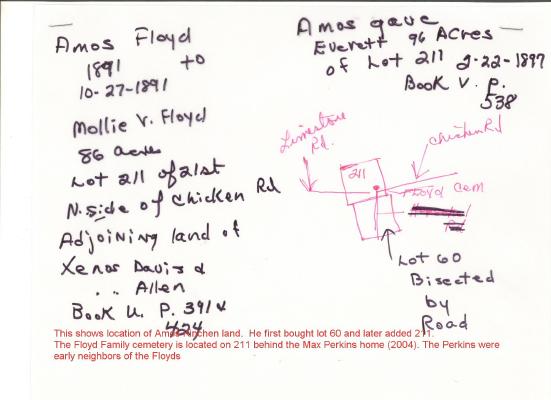 Amos Floyd
1891 to
10-27-1891
Mollie V. Floyd
86 acres
Lot 211 of 21st
N. side of Chicken Rd
Adjoining land of
Xenas Davis &
" " Allen
Book U. P. 391 &
424
Amos gave
Everett 96 Acres
of Lot 211 2-22-1897
Book V. P.
538
Limestone
Rd.
Chicken Rd
211
Floyd Cem
Rd
Lot 60
Bisected
by
Road
This shows location of Amos Kinchen land. He first bought lot 60 and later added 211.
The Floyd Family cemetery is located on 211 behind the Max Perkins home (2004). The Perkins were
early neighbors of the Floyds